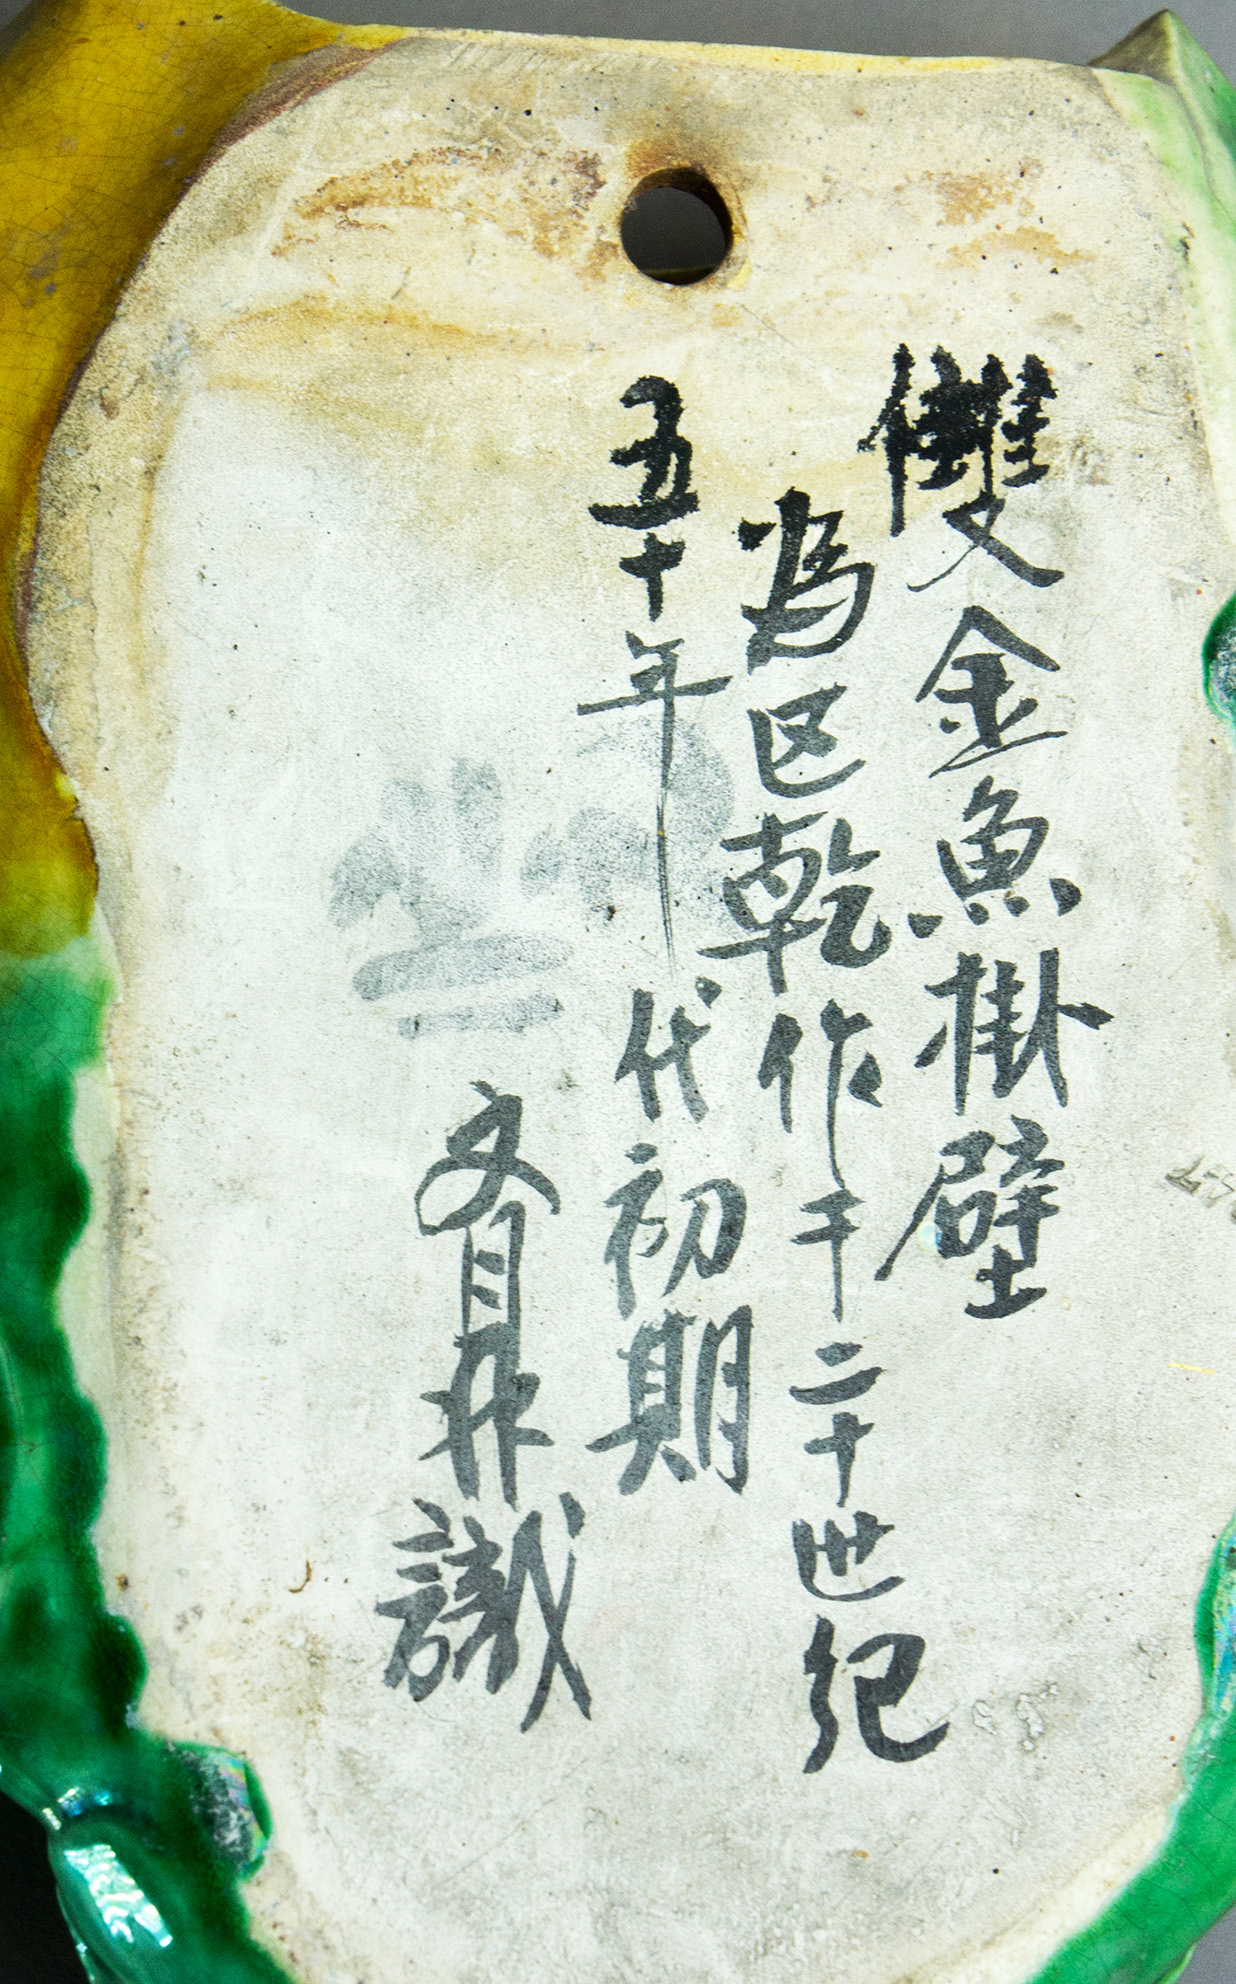 雙金魚掛壁
為区乾作于二十世紀
五十年代初期
識